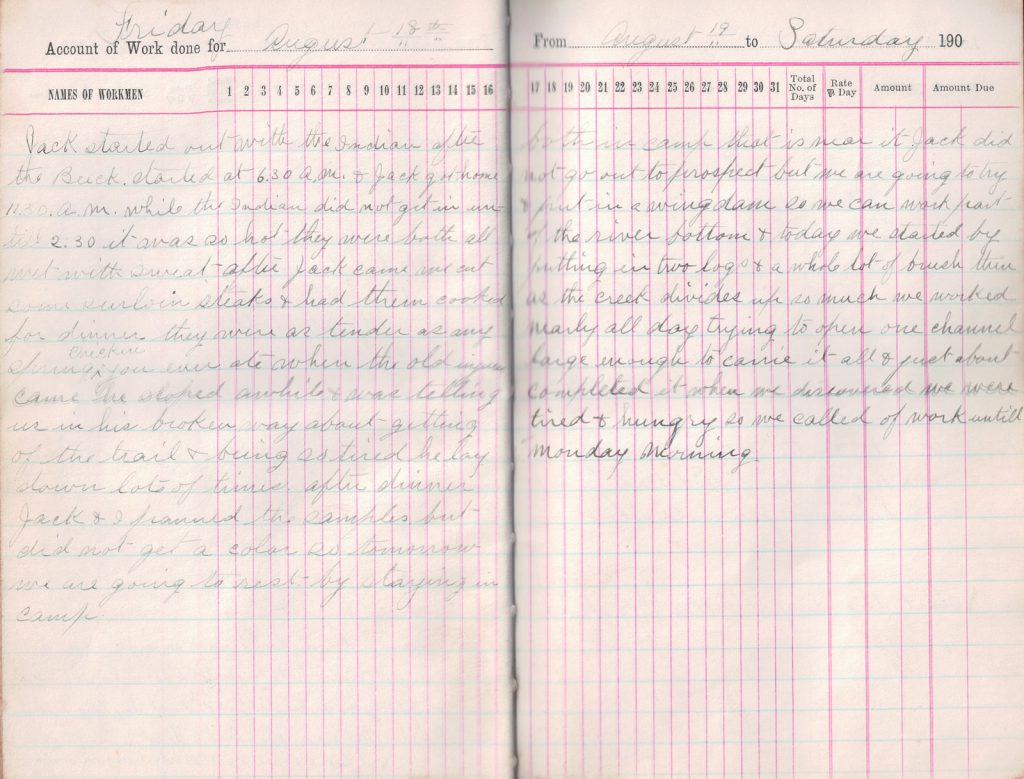 Friday
Account of Work done for August 18th
NAMES OF WORKMEN 1 2 3 4 5 6 7 8 9 10 11 12 13 14 15 16
Jack started out with the Indian after
the Buck. started at 6.30 A.M. & Jack got home
11.30. A.M. while the Indian did not get in un-
till 2.30 it was so hot they were both all
wet with sweat after Jack came we cut
some surloin steaks & had them cooked
for dinner they were as tender as any
chicken
spring you ever ate when the old
came he stoped awhile & was telling
us in his broken way about getting
of the trail & being so tired he lay
down lots of times. after dinner
Jack & I panned the samples but
did not get a color so tomorrow
we are going to rest by staying in
camp.
From August 19 to Saturday 190
17 18 19 20 21 22 23 24 25 26 27 28 29 30 31 Total No. of Days Rate ⅌ Day Amount Amount Due
both in camp that is near it Jack did
not go out to prospect but we are going to try
& put in a wing dam so we can work part
of the river bottom & today we started by
putting in two logs & a whole lot of brush then
as the creek divides up so much we worked
nearly all day trying to open one channel
large enough to carrie it all & just about
completed it when we discovered we were
tired & hungry so we called of work untill
monday morning